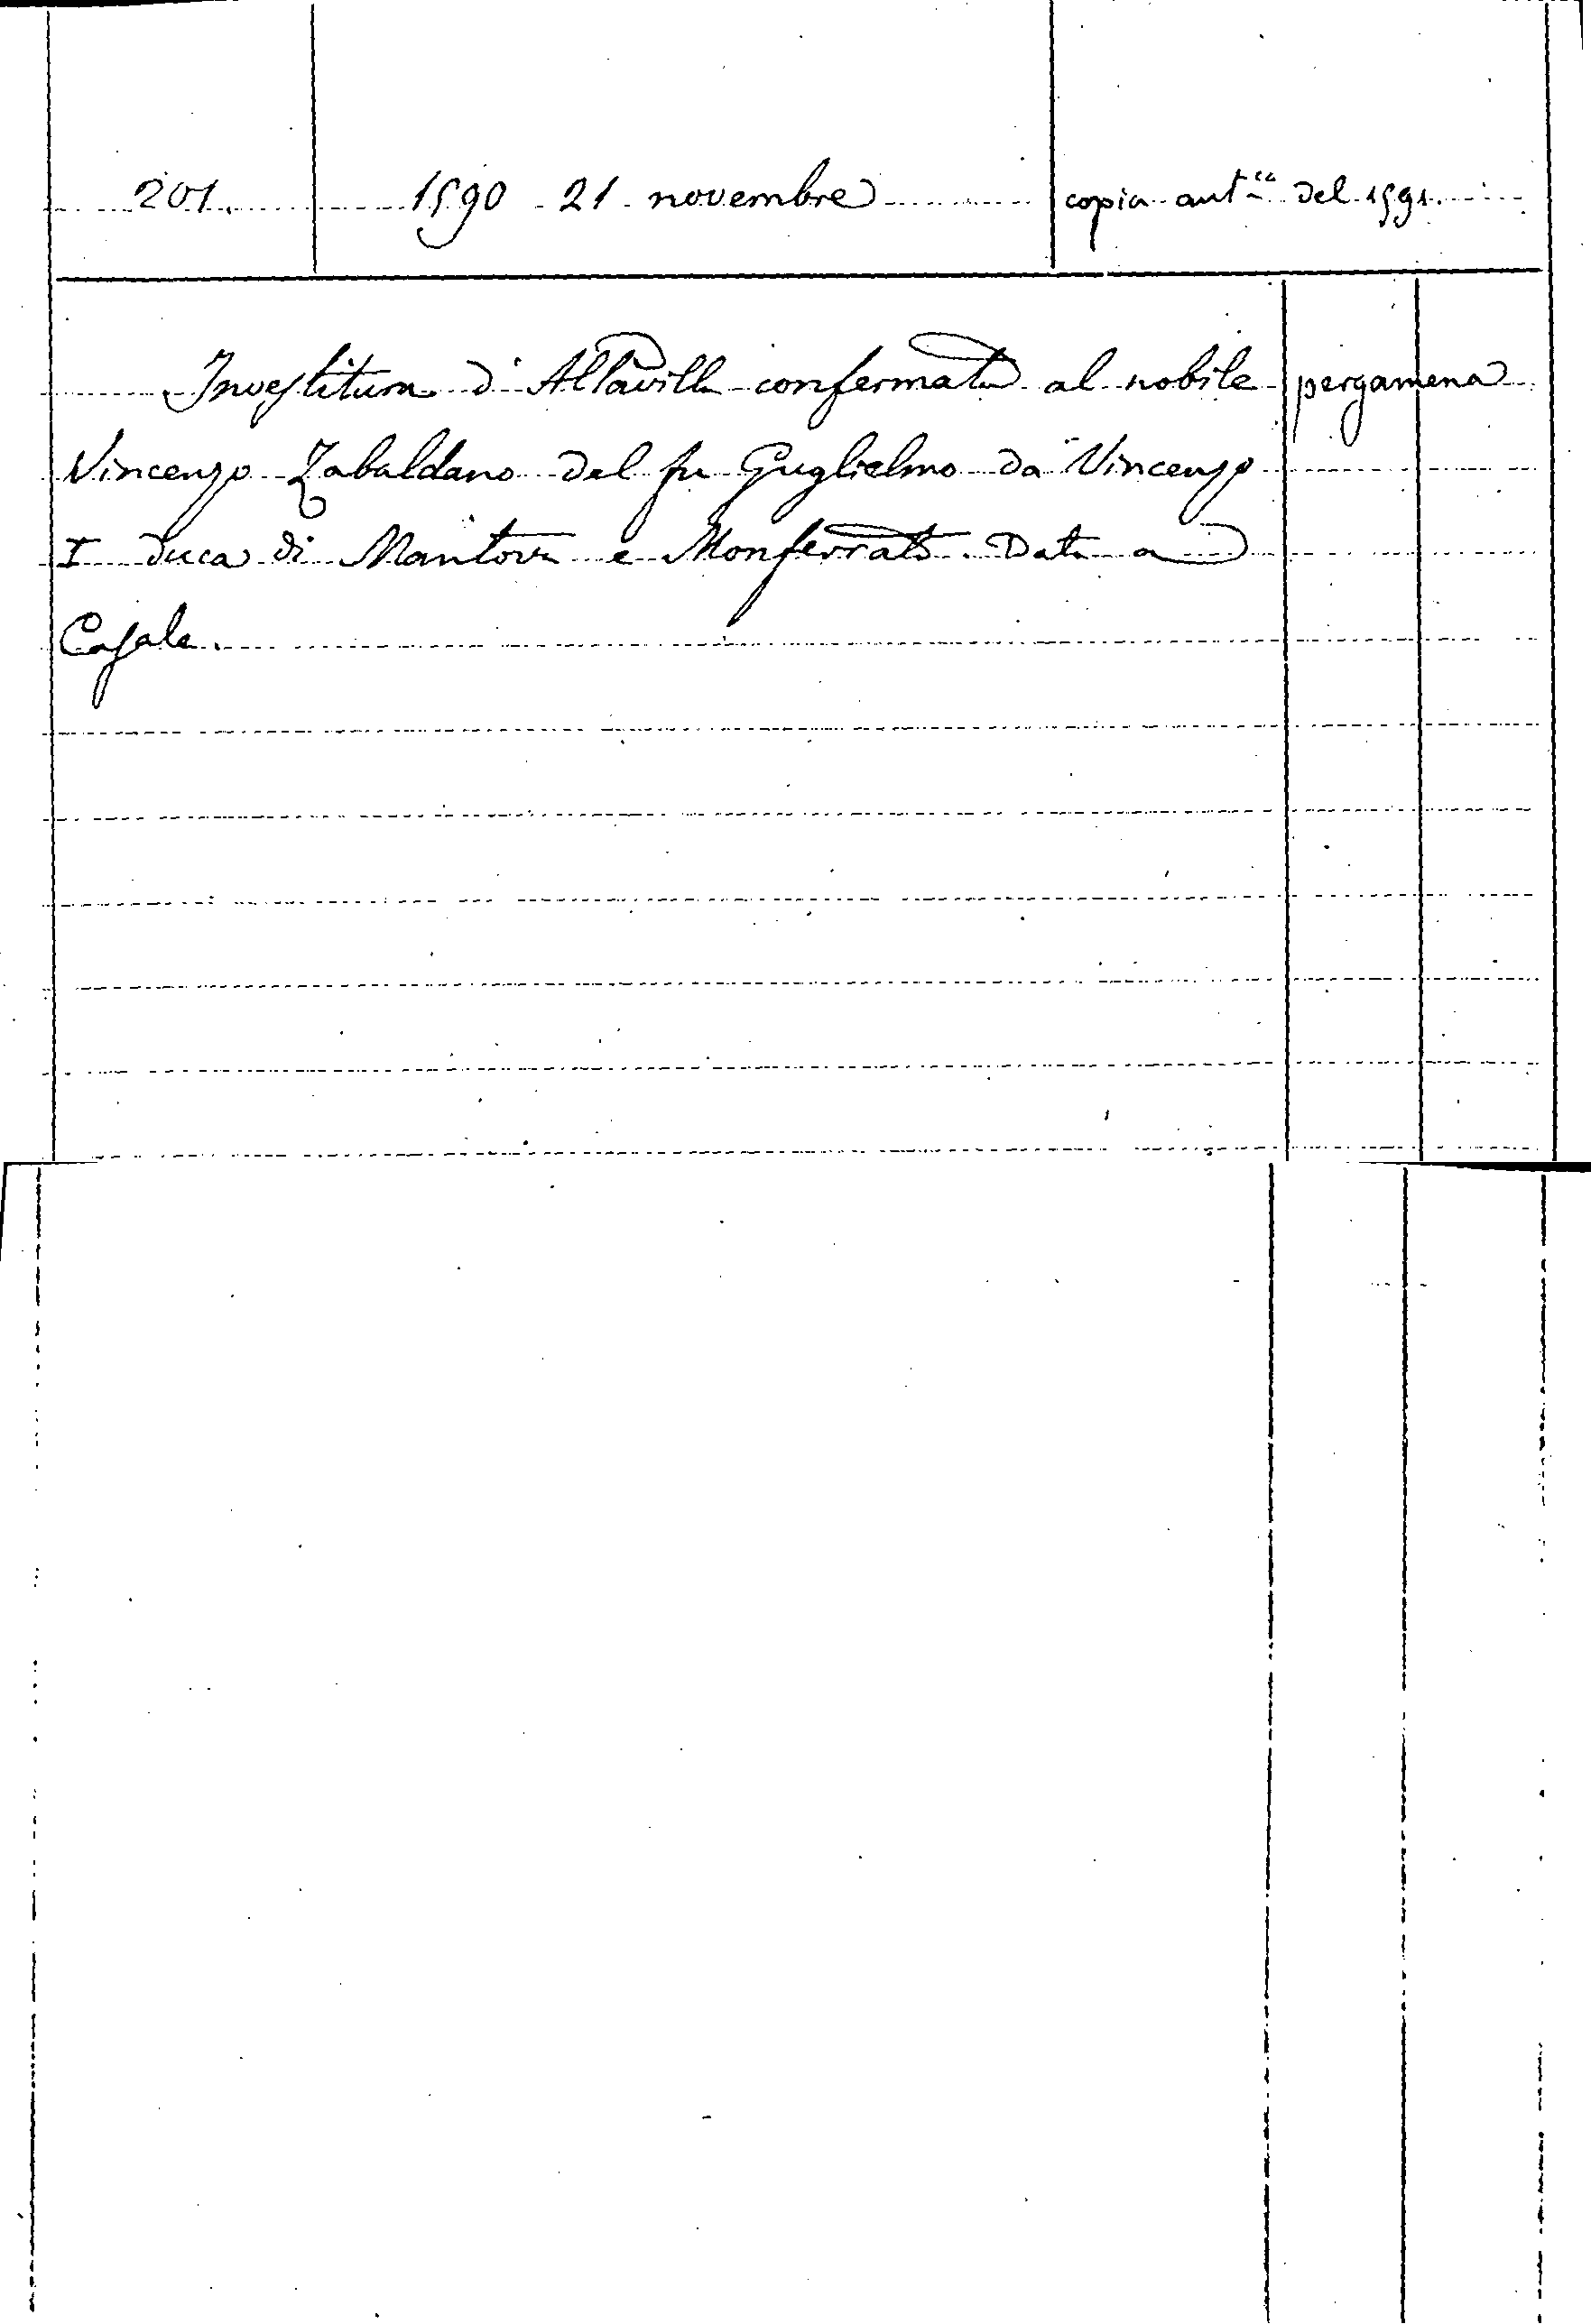 201. 1590 21 novembre copia aut.ca del 1591.
Investitura d'Altavilla confermata al nobile pergamena
Vincenzo Zabaldano del fu Guglielmo da Vincenzo
I duca di Mantova e Monferrato. Data a
Casale.